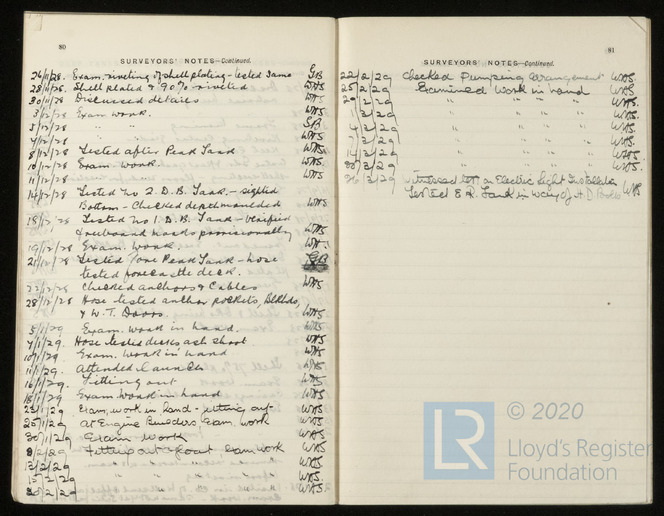 80
SURVEYORS' NOTES—Continued.
26/11/28. Exam. riveting of shell plating - tested same GB
28/11/28. Shell plated & 90% riveted WHS
30/11/28 Discussed details WHS
3/12/28 Exam work. WHS
5/12/28 " " GB
7/12/28 " " WHS
8/12/28 Tested after Peak Tank WHS
10/12/28 Exam. Work. WHS
11/12/28 " " WHS
14/12/28 Tested No 2. D.B. Tank. - sighted
Bottom - Checked depth moulded WHS
18/12/28 Tested No 1. D.B. Tank - Verified
freeboard marks provisionally WHS
19/12/28 Exam. Work. WHS
21/12/28 Tested Fore Peak Tank - hose GB
tested forecastle deck.
22/12/28 Checked anchors & Cables WHS
28/12/28 Hose tested anchor pockets, Blkhds,
& W.T. Doors. WHS
5/1/29 Exam. work in hand. WHS
7/1/29 Hose tested decks ash shoot WHS
10/1/29 Exam. Work in hand WHS
11/1/29. Attended Launch WHS
16/1/29 Fitting out WHS
18/1/29 Exam Work in hand WHS
23/1/29 Exam. work in hand - fitting out WHS
25/1/29 At Engine Builders Exam. work WHS
30/1/29 Exam Work WHS
8/2/29 Fitting out afloat Exam work WHS
13/2/29 " " " WHS
15/2/29 " " " WHS
20/2/29 WHS
81
SURVEYORS' NOTES—Continued.
22/2/29 Checked Pumping arrangement WHS
25/2/29 Examined Work in hand WHS
" " " WHS
1/3/29 " " " WHS
/3/29 " " " WHS
/3/29 " " " WHS
14/3/29 " " " WHS
20/3/29 " " " WHS
26/3/29 Witnessed test on Electric Light Installation
Tested E.R. Tank in way of H.D. Bolts WHS
© 2020
LR
Lloyd's Register
Foundation